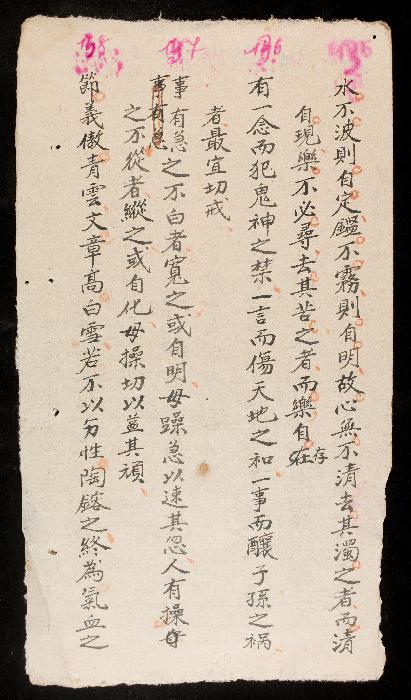 135
水不波則自定鑑不霧則自明故心無不清去其濁之者而清
自現樂不必尋去其苦之者而樂自在存
136
有一念而犯鬼神之禁一言而傷天地之和一事而釀子孫之禍
者最宜切戒
137
事有急之不白者寬之或自明毋躁急以速其忿人有操
事有急
之不從者縱之或自化毋操切以益其頑
節義傲青雲文章高白雪若不以
性陶鎔之終為氣血之